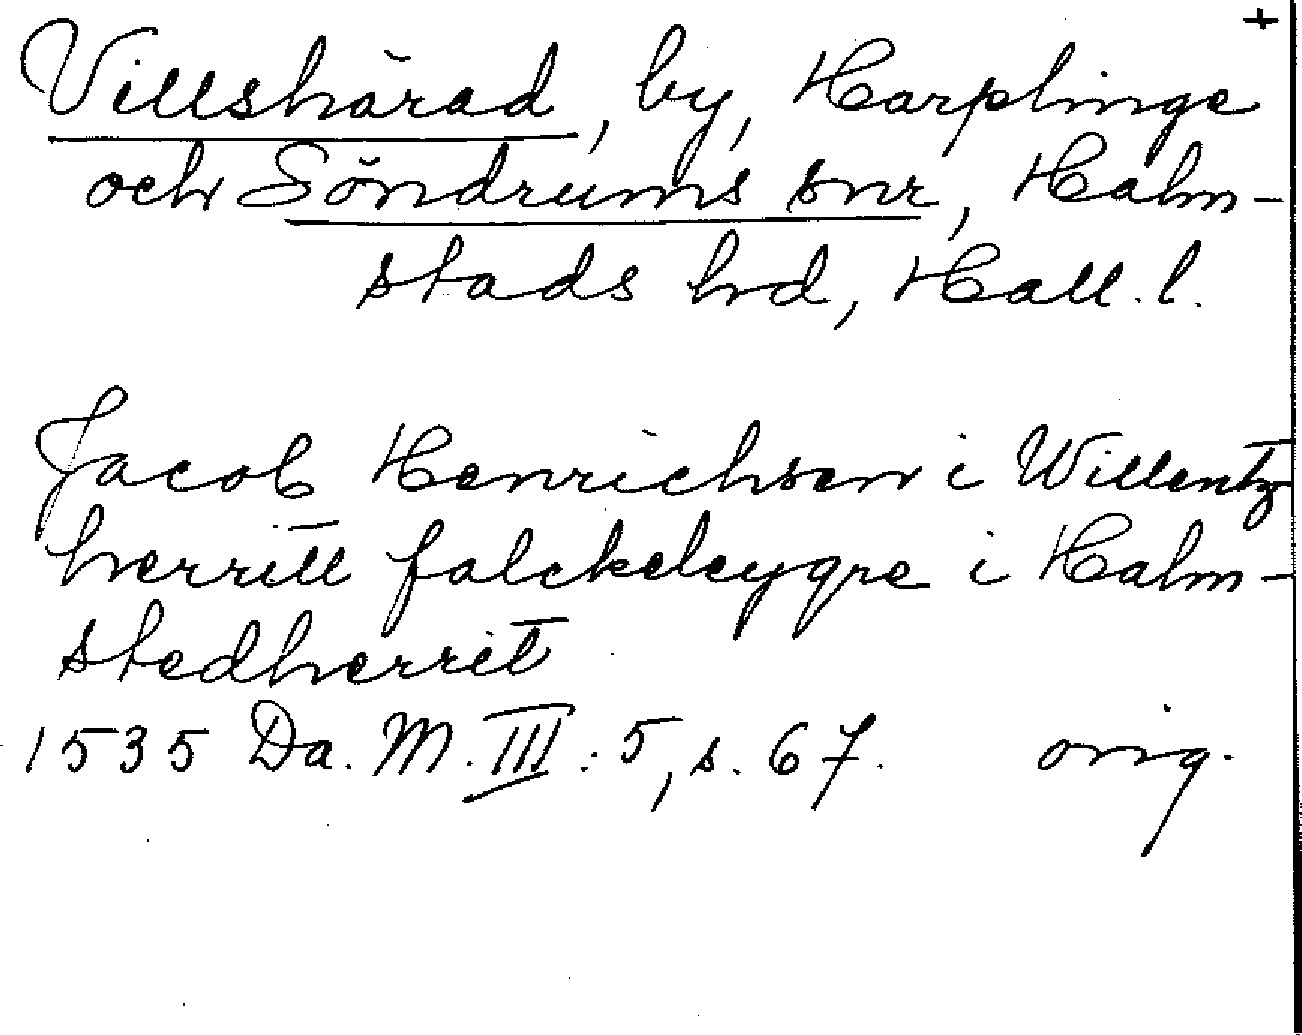 +
Villshärad, by, Harplinge
och Söndrums snr, Halm-
stads hd, Hall. l.
Jacob Henrichsen i Willentz
herritt falckeleygre i Halm-
stedherrit
1535 Da. M. III: 5, s. 67. orig.